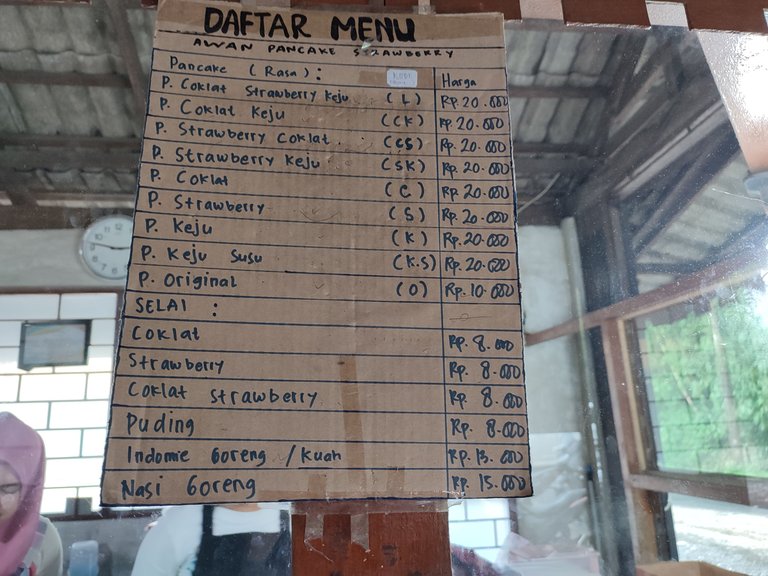 DAFTAR MENU
AWAN PANCAKE STRAWBERRY
Pancake (Rasa) : Harga
P. Coklat Strawberry Keju (L) Rp. 20.000
P. Coklat Keju (CK) Rp. 20.000
P. Strawberry Coklat (CS) Rp. 20.000
P. Strawberry Keju (SK) Rp. 20.000
P. Coklat (C) Rp. 20.000
P. Strawberry (S) Rp. 20.000
P. Keju (K) Rp. 20.000
P. Keju Susu (K.S) Rp. 20.000
P. Original (O) Rp. 10.000
SELAI :
Coklat Rp. 8.000
Strawberry Rp. 8.000
Coklat Strawberry Rp. 8.000
Puding Rp. 8.000
Indomie Goreng / Kuah Rp. 13.000
Nasi Goreng Rp. 15.000